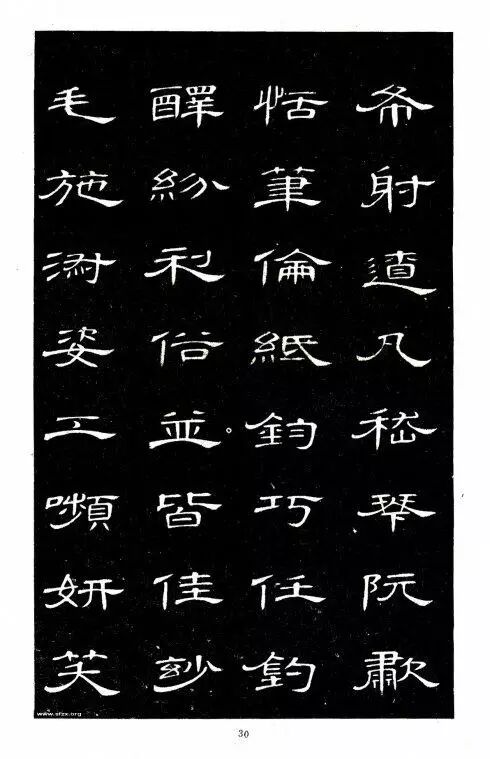 布射遼丸嵇琴阮歗
恬筆倫紙鈞巧任釣
醳紛利俗並皆佳玅
毛施淑姿工嚬妍笑
www.sfzx.org
30